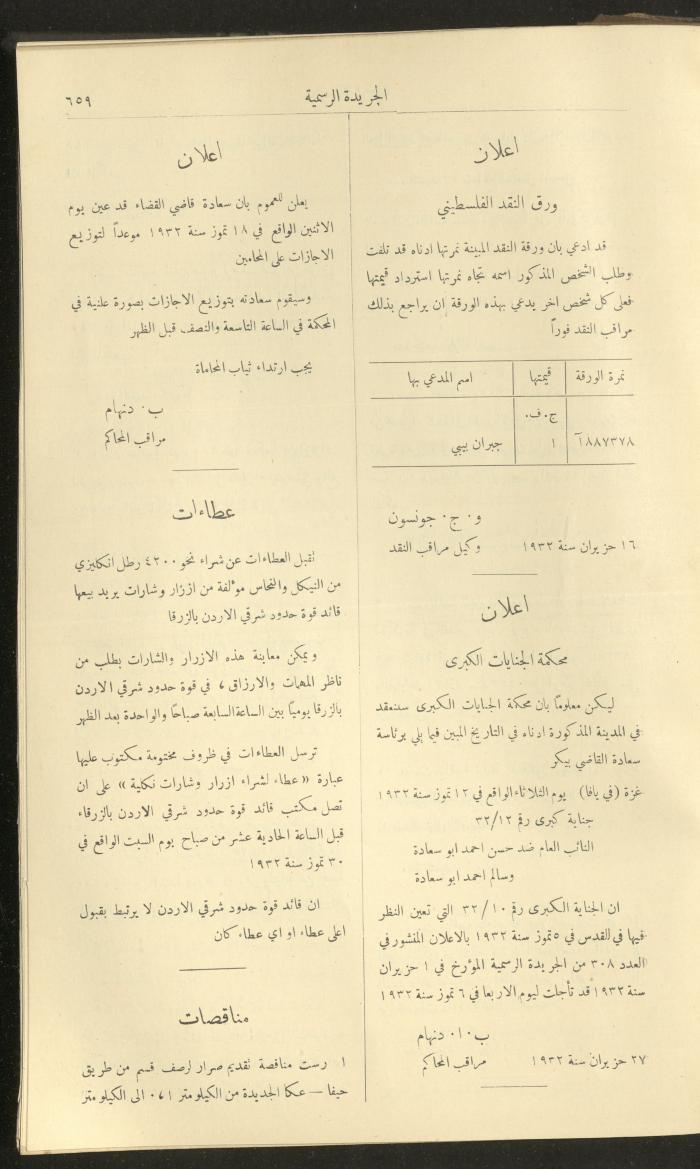 الجريدة الرسمية
٦٥٩
اعلان
ورق النقد الفلسطيني
قد ادعي بان ورقة النقد المبينة نمرتها ادناه قد تلفت
وطلب الشخص المذكور اسمه تجاه نمرتها استرداد قيمتها
فعلى كل شخص اخر يدعي بهذه الورقة ان يراجع بذلك
مراقب النقد فوراً
نمرة الورقة قيمتها اسم المدعي بها
ج.ف.
٨٨٧٣٧٨ ١ جبران بيبي
و. ج. جونسون
١٦ حزيران سنة ١٩٣٢ وكيل مراقب النقد
اعلان
محكمة الجنايات الكبرى
ليكن معلوماً بان محكمة الجنايات الكبرى ستنعقد
في المدينة المذكورة ادناه في التاريخ المبين فيما يلي برئاسة
سعادة القاضي بيكر
غزة (في يافا) يوم الثلاثاء الواقع في ١٢ تموز سنة ١٩٣٢
جناية كبرى رقم ٣٢/١٢
النائب العام ضد حسن احمد ابو سعادة
وسالم احمد ابو سعادة
ان الجناية الكبرى رقم ٣٢/١٠ التي تعين النظر
فيها في القدس في ٥ تموز سنة ١٩٣٢ بالاعلان المنشور في
العدد ٣٠٨ من الجريدة الرسمية المؤرخ في ١ حزيران
سنة ١٩٣٢ قد تأجلت ليوم الاربعا في ٦ تموز سنة ١٩٣٢
ب. ا. دنهام
٢٧ حزيران سنة ١٩٣٢ مراقب المحاكم
اعلان
يعلن للعموم بان سعادة قاضي القضاء قد عين يوم
الاثنين الواقع في ١٨ تموز سنة ١٩٣٢ موعداً لتوزيع
الاجازات على المحامين
وسيقوم سعادته بتوزيع الاجازات بصورة علنية في
المحكمة في الساعة التاسعة والنصف قبل الظهر
يجب ارتداء ثياب المحاماة
ب. دنهام
مراقب المحاكم
عطاءات
تقبل العطاءات عن شراء نحو ٤٢٠٠ رطل انكليزي
من النيكل والنحاس مؤلفة من ازرار وشارات يريد بيعها
قائد قوة حدود شرقي الاردن بالزرقا
ويمكن معاينة هذه الازرار والشارات بطلب من
ناظر المهمات والارزاق، في قوة حدود شرقي الاردن
بالزرقا يومياً بين الساعة السابعة صباحاً والواحدة بعد الظهر
ترسل العطاءات في ظروف مختومة مكتوب عليها
عبارة «عطاء لشراء ازرار وشارات نكلية» على ان
تصل مكتب قائد قوة حدود شرقي الاردن بالزرقاء
قبل الساعة الحادية عشر من صباح يوم السبت الواقع في
٣٠ تموز سنة ١٩٣٢
ان قائد قوة حدود شرقي الاردن لا يرتبط بقبول
اعلى عطاء او اي عطاء كان
مناقصات
١ رست مناقصة تقديم صرار لرصف قسم من طريق
حيفا – عكا الجديدة من الكيلو متر الى الكيلو متر